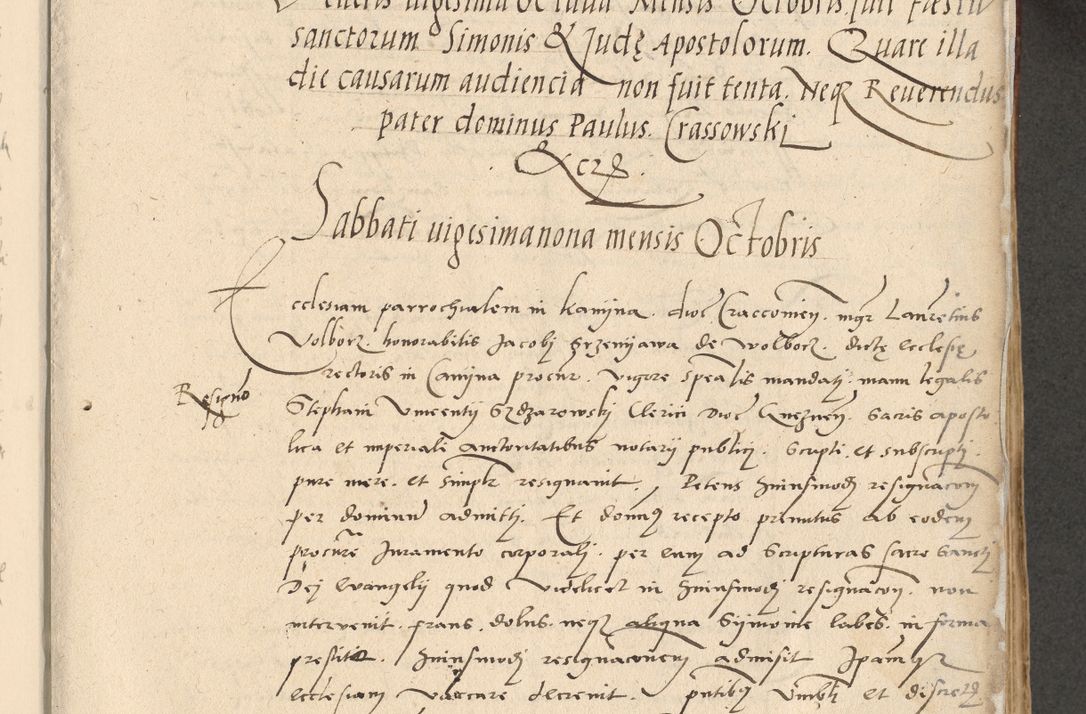 vigesima Octava Mensis Octobris fuit
sanctorum Simonis & Judę Apostolorum. Quare illa
die causarum audiencia non fuit tenta. Neq Reverendus
pater dominus Paulus. Crassowski
&cz.
Sabbati vigesimanona mensis Octobris
Ecclesiam parrochialem in kamyna. dioc Cracovien. mgr Laurētius
Volborz. honorabilis Jacobj Grzemyawa de Wolborz. dictę ecclesię
rectoris in Camyna procur. vigore spealis mandatj. manu legalis
Resigno
Stephani Vincentij Clerici Dioc Gneznen. Sacris aposto
lica et imperiali auctoritatibus notarij publicj. Scripti. et subscriptj.
pure mere. et simplr resignauit. Petens huiusmodj resignacom
per dominum admittj. Et domin recepto primitus ab eodem
procure Juramento corporalj. per eum ad Scripturas sacro Sanctj
Dej Evangelij quod videlicet in huiusmodj resignacom. non
intervenit. fraus. dolus. neq aliqua Symonie labes. in forma
prestito. huiusmodj resignaconem admisit Ipamqz
ecclesiam vaccare decrevit. pntibq et discretz